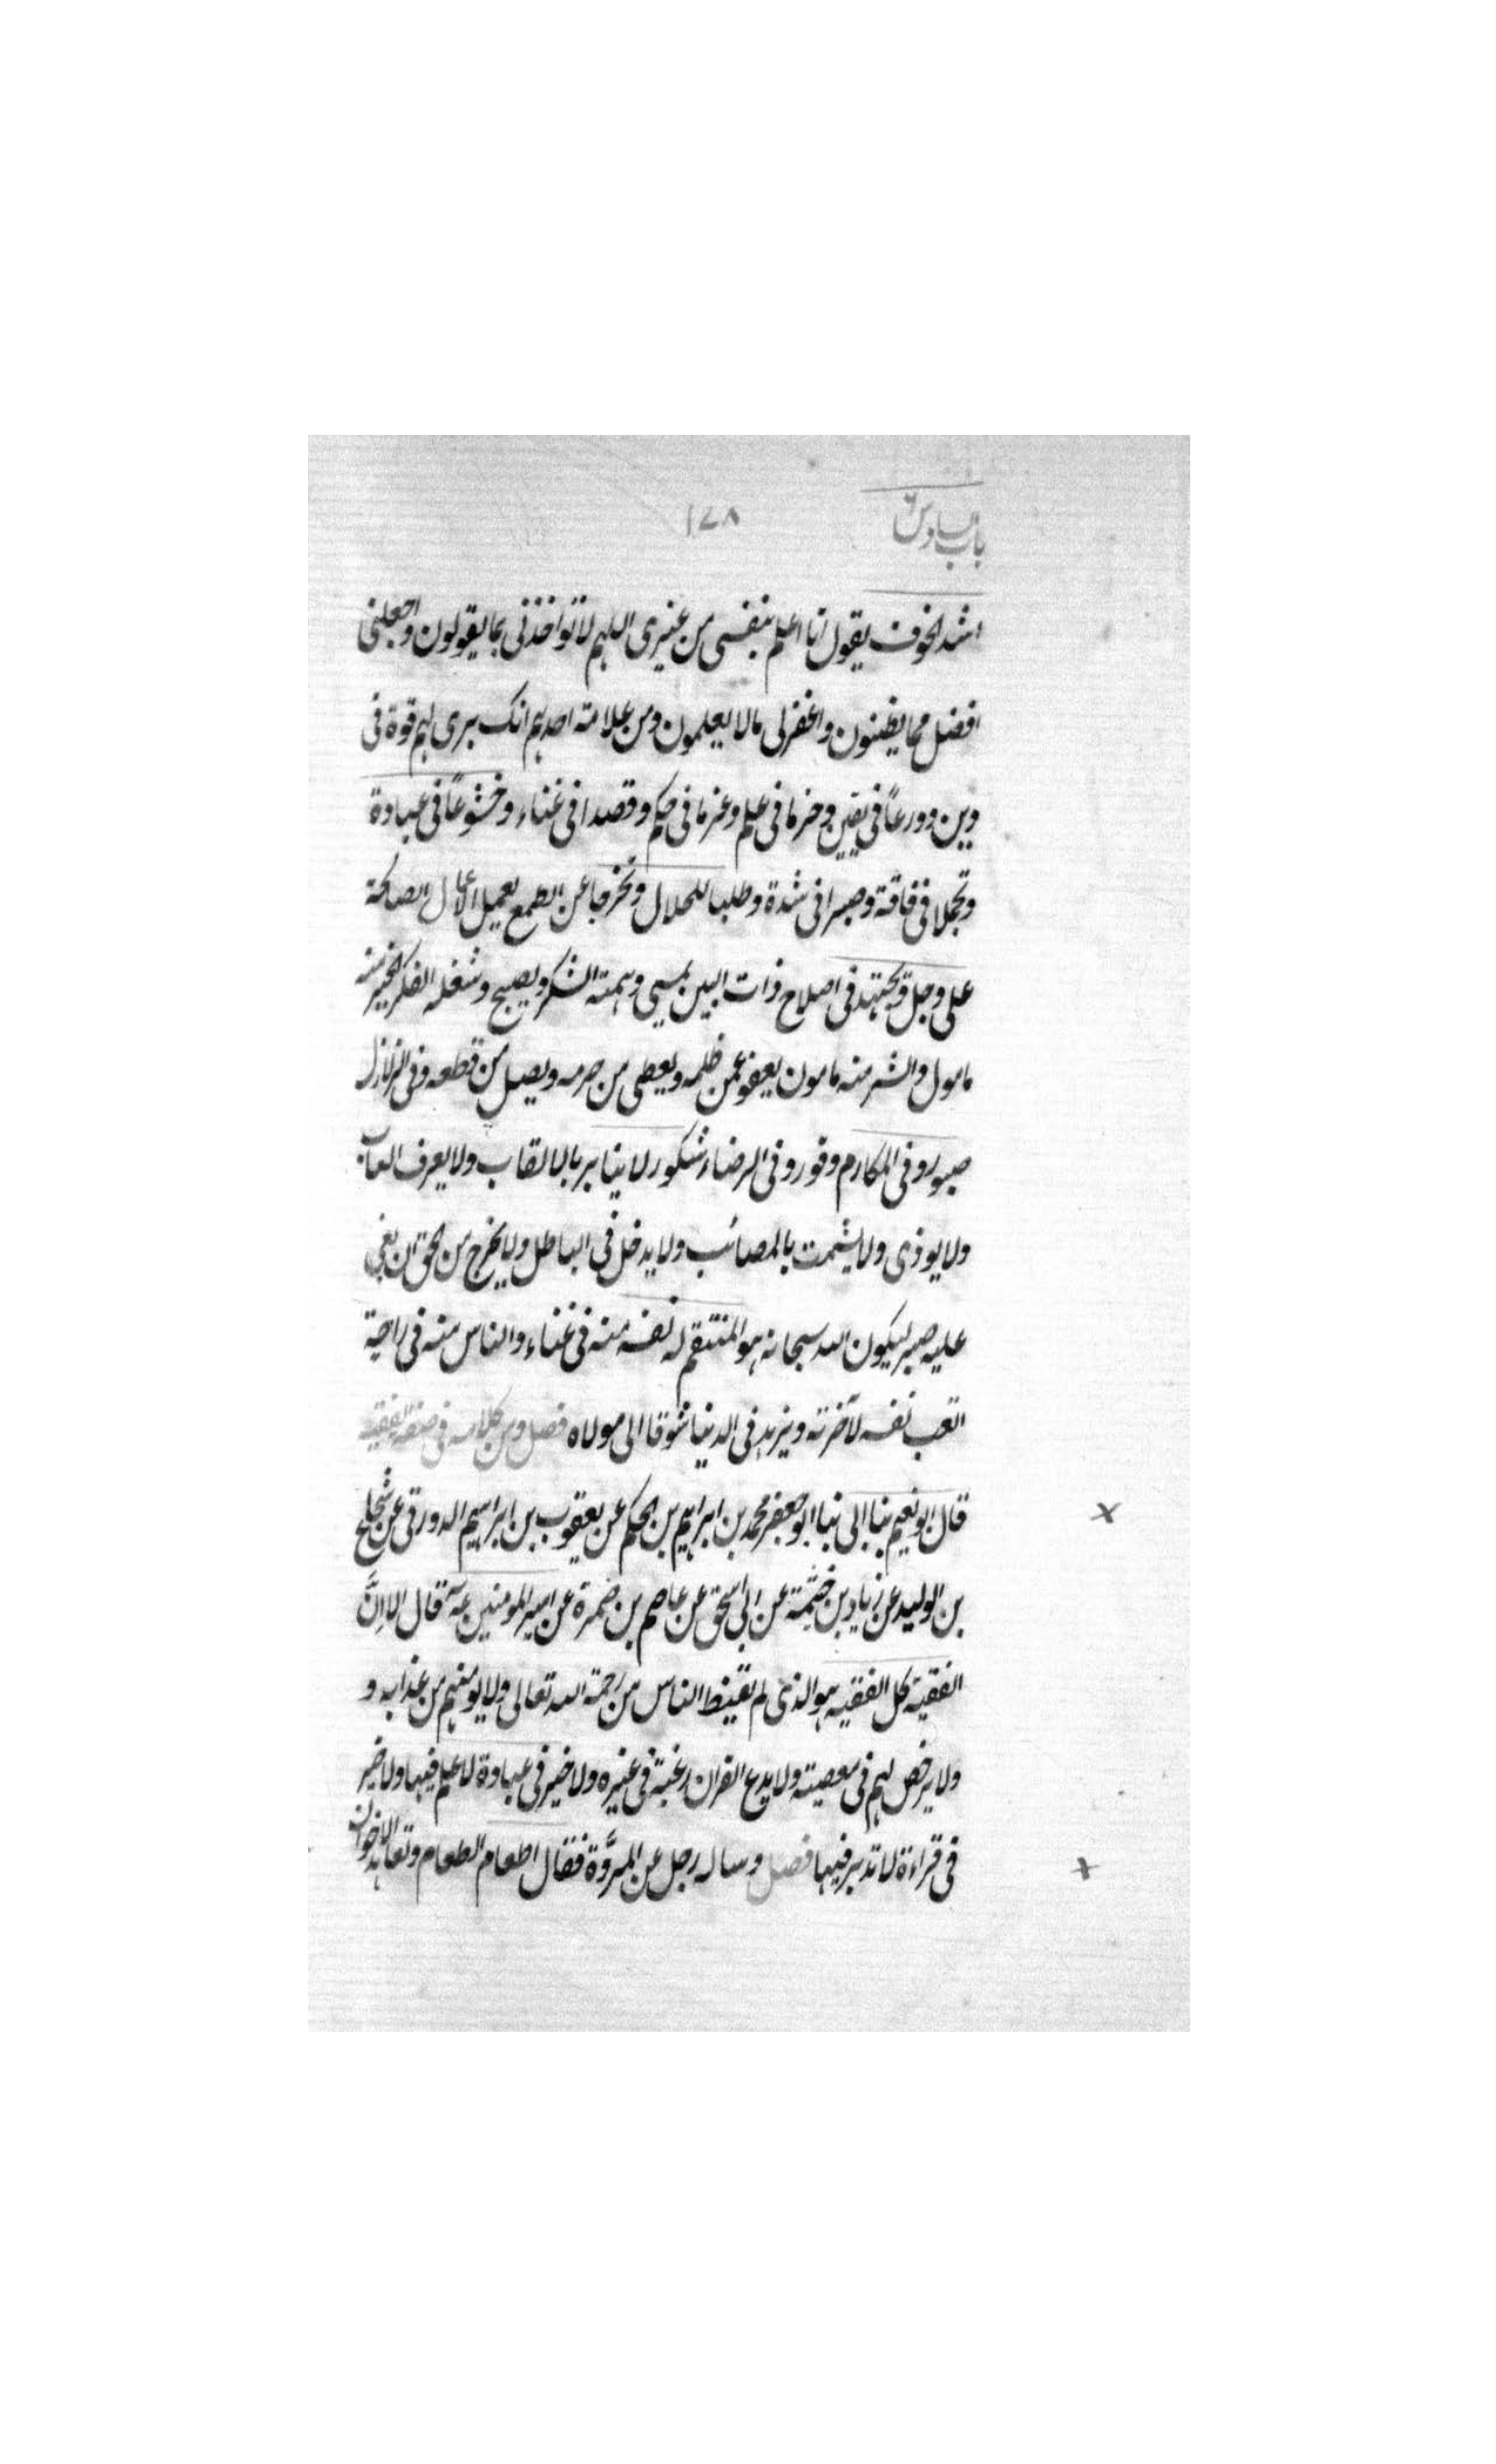 باب سادس
١٧٨
اشد الخوف يقول انا اعلم بنفسى من غيرى اللهم لا تواخذنى بما يقولون واجعلنى
افضل مما يظنون واغفر لى ما لا يعلمون ومن علامته احدهم انك يرى لهم قوة فى
دين وورعًا فى يقين وحزما فى علم وعزما فى حكم وقصدا فى غناء وخشوعًا فى عبادة
وتجملا فى فاقة وصبرا فى شدة وطلبا للحلال وتحرجا عن الطمع يعمل الاعمال الصالحة
على وجل ويجتهد فى اصلاح ذات البين يمسى وهمته الشكر ويصبح وشغله الفكر الخير منه
مامول والشر منه مامون يعفو عمن ظلمه ويعطى من حرمه ويصل من قطعه وفى الزلازل
صبور وفى المكارم وقور وفى الرضاء شكور لا ينابز بالالقاب ولا يعرف العاب
ولا يوذى ولا يشمت بالمصائب ولا يدخل فى الباطل ولا يخرج من الحق ان بغى
عليه صبر ليكون الله سبحانه هو المنتقم له نفسه منه فى غناء والناس منه فى راحة
اتعب نفسه لآخرته ويزهد فى الدنيا شوقا الى مولاه فصل ومن كلامه فى صفة الفقيه
قال ابو نعيم بنا ابى نبا ابو جعفر محمد بن ابراهيم بن الحكم عن يعقوب بن ابراهيم الدورقى عن شجاع
بن الوليد عن زياد بن خثيمة عن ابى اسحق عن عاصم بن ضمرة عن امير المومنين عه قال الا انَّ
الفقيه كل الفقيه هو الذى لم تقنط الناس من رحمة الله تعالى ولا يومنهم من عذابه و
ولا يرخص لهم فى معصيته ولا يدع القران رغبة فى غيره ولا خير فى عبادة لا علم فيها ولا خير
فى قراءة لا تدبر فيها فصل وساله رجل عن المروَّة فقال اطعام الطعام وتعاهد الاخوان